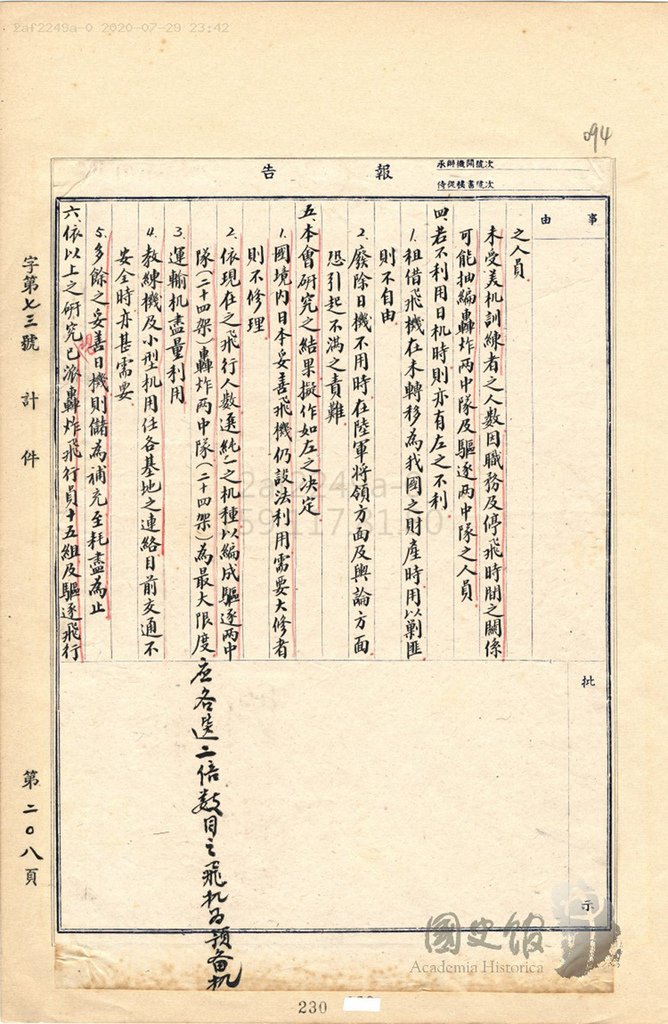 2af2249a-0 2020-07-29 23:42
094
報告
承辦機關號次
侍從機書號次
事由
之人員
未受美机訓練者之人數因職務及停飛時間之關係
可能抽編轟炸两中隊及驅逐两中隊之人員
四、若不利用日机時則亦有左之不利
1. 租借飛機在未轉移為我國之財產時用以剿匪
則不自由
2. 廢除日機不用時在陸軍將領方面及輿論方面
恐引起不満之責難
五、本會研究之結果擬作如左之決定
1. 國境內日本妥善飛機仍設法利用需要大修者
則不修理
2. 依現在之飛行人數選純一之机種以編成驅逐两中
隊(二十四架)轟炸两中隊(二十四架)為最大限度
應各選二倍數目之飛机為預备机
3. 運輸机盡量利用
4. 教練機及小型机用任各基地之連絡目前交通不
安全時亦甚需要
5. 多餘之妥善日機則儲為補充至耗盡為止
六、依以上之研究已派轟炸飛行員十五組及驅逐飛行
批示
字第七三號 計 件
第二〇八頁
2af2249a-
國史館
Academia Historica
230